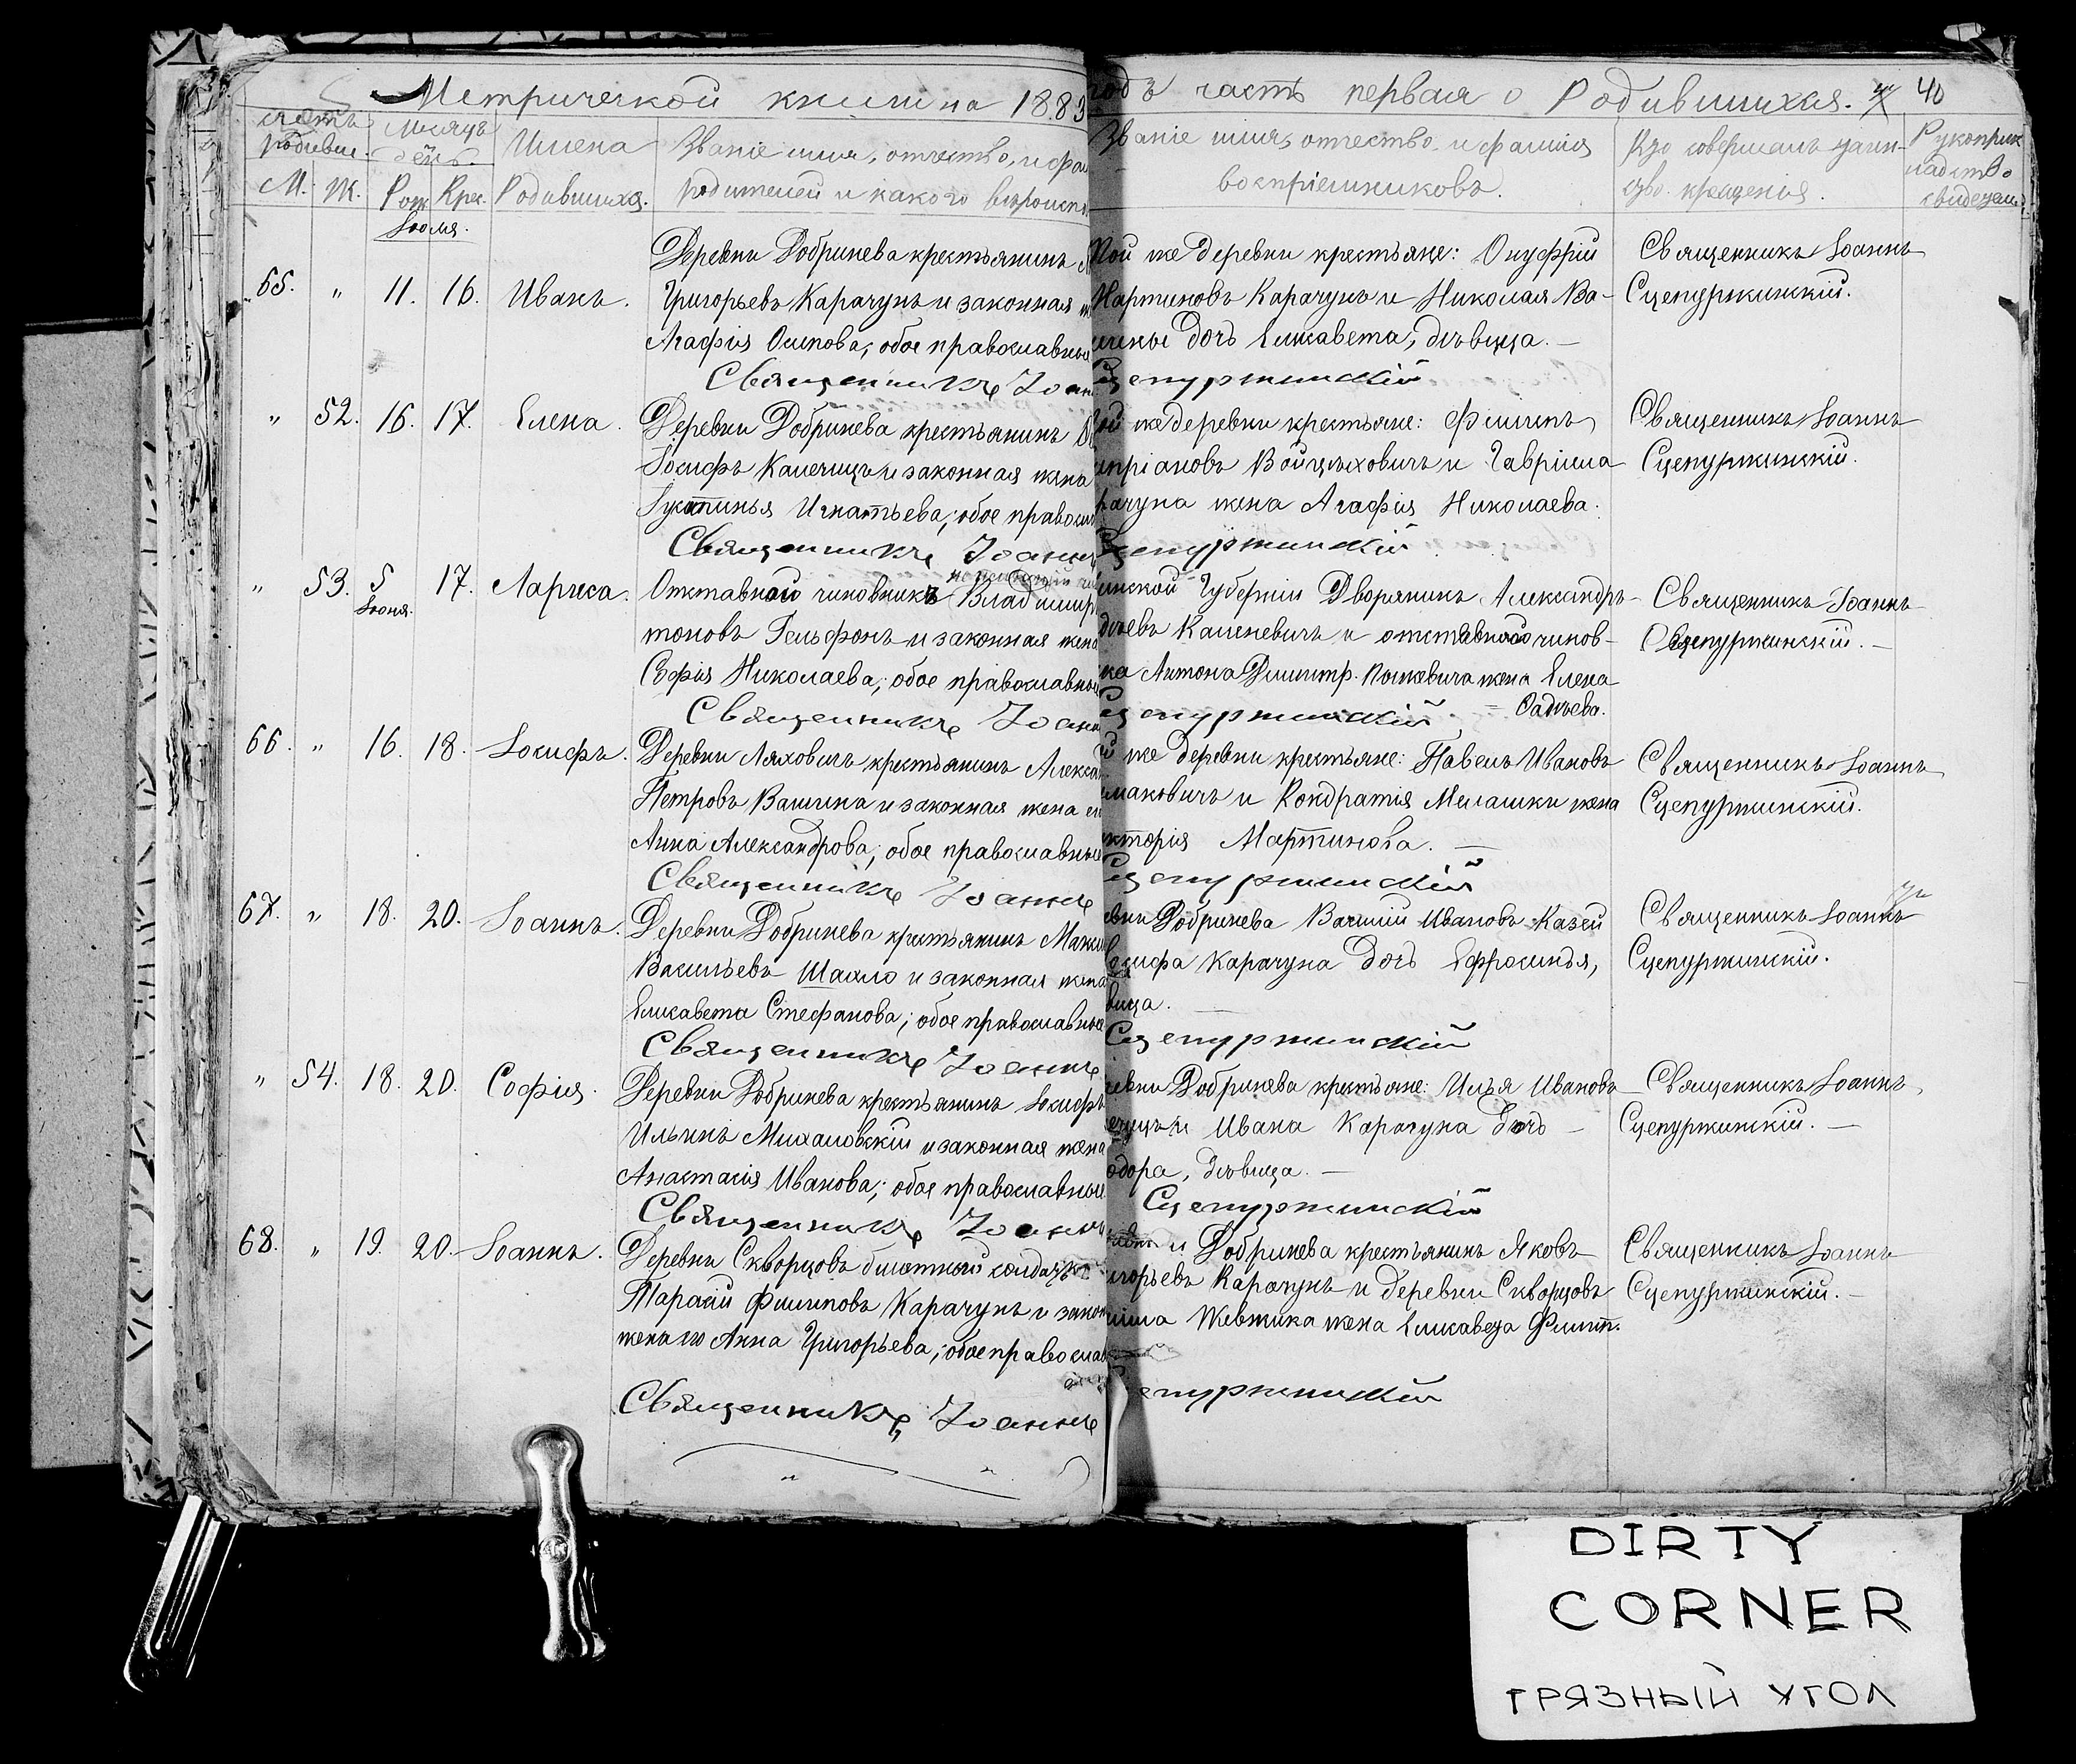 Метрической книги на 1883
годъ часть первая о Родившихся. 40
счетъ родивш.
Мѣсяцъ день
Имена
Званіе имя, отчество, и фам
М. Ж. Рож Крес. Родившихся.
родителей и какого вѣроиспо.
Званіе имя, отчество, и фамилія
воспріемниковъ.
Кто совершалъ таин-
ство крещенія.
Рукоприк
ладство
свидетел
Іюля.
65. " 11. 16. Иванъ.
Деревни Добринева крестьянинъ
Григорьевъ Карачунъ и законная
Агафія Осипова; обое православные
Священникъ Іоан
той же деревни крестьяне: Онуфрій
Мартиновъ Карачунъ и Николая Ва-
дочь Елисавета, дѣвица. —
Сцепуржинскій
Священникъ Іоаннъ
Сцепуржинскій.
" 52. 16. 17. Елена.
Деревни Добринева крестьянинъ
Іосифъ Капечицъ и законная жена
Іустинья Игнатьева; обое правосл
Священникъ Іоаннъ
той же деревни крестьяне: Филипъ
Войцѣховичъ и Гавріила
Карачуна жена Агафія Николаева.
Сцепуржинскій
Священникъ Іоаннъ
Сцепуржинскій.
" 53. 5 17. Лариса.
Іюня.
Отставной чиновникъ Владимиръ
тоновъ Гельфонъ и законная жена
Софія Николаева; обое православные
Священникъ Іоан
Минской Губерніи Дворянинъ Александръ
Каменевичъ и отставного чинов-
ка Антона Димитр. жена Елена
Фадѣева.
Сцепуржинскій
Священникъ Іоаннъ
Сцепуржинскій. —
66. " 16. 18. Іосифъ.
Деревни Ляховичъ крестьянинъ Алекса
Петровъ Вашина и законная жена ег
Анна Александрова; обое православные
Священникъ Іоаннъ
й же деревни крестьяне: Павелъ Ивановъ
маковичъ и Кондратія Мелашки жена
кторія Мартинова. —
Сцепуржинскій
Священникъ Іоаннъ
Сцепуржинскій.
67. " 18. 20. Іоаннъ.
Деревни Добринева крестьянинъ Макси
Васильевъ Шахло и законная жена
Елисавета Стефанова; обое православные
Священникъ Іоаннъ
евни Добринева Василій Ивановъ Казей
Іосифа Карачуна дочь Ефросинья,
вица. —
Сцепуржинскій
Священникъ Іоаннъ
Сцепуржинскій.
" 54. 18. 20. Софія.
Деревни Добринева крестьянинъ Іосифъ
Ильинъ Михаловскій и законная жена
Анастасія Иванова; обое православные
Священникъ Іоаннъ
ревни Добринева крестьяне: Илья Ивановъ
и Ивана Карачуна дочь —
одора, дѣвица. —
Сцепуржинскій
Священникъ Іоаннъ
Сцепуржинскій. —
68. " 19. 20. Іоаннъ.
Деревни Скворцовъ билетный солдатъ
Тарасій Филиповъ Карачунъ и закон
жена его Анна Григорьева; обое православ
Священникъ Іоаннъ
и Добринева крестьянинъ Яковъ
игорьевъ Карачунъ и деревни Скворцовъ
Жевжика жена Елисавета Филип.
Сцепуржинскій
Священникъ Іоаннъ
Сцепуржинскій. —
DIRTY
CORNER
ГРЯЗНЫЙ УГОЛ